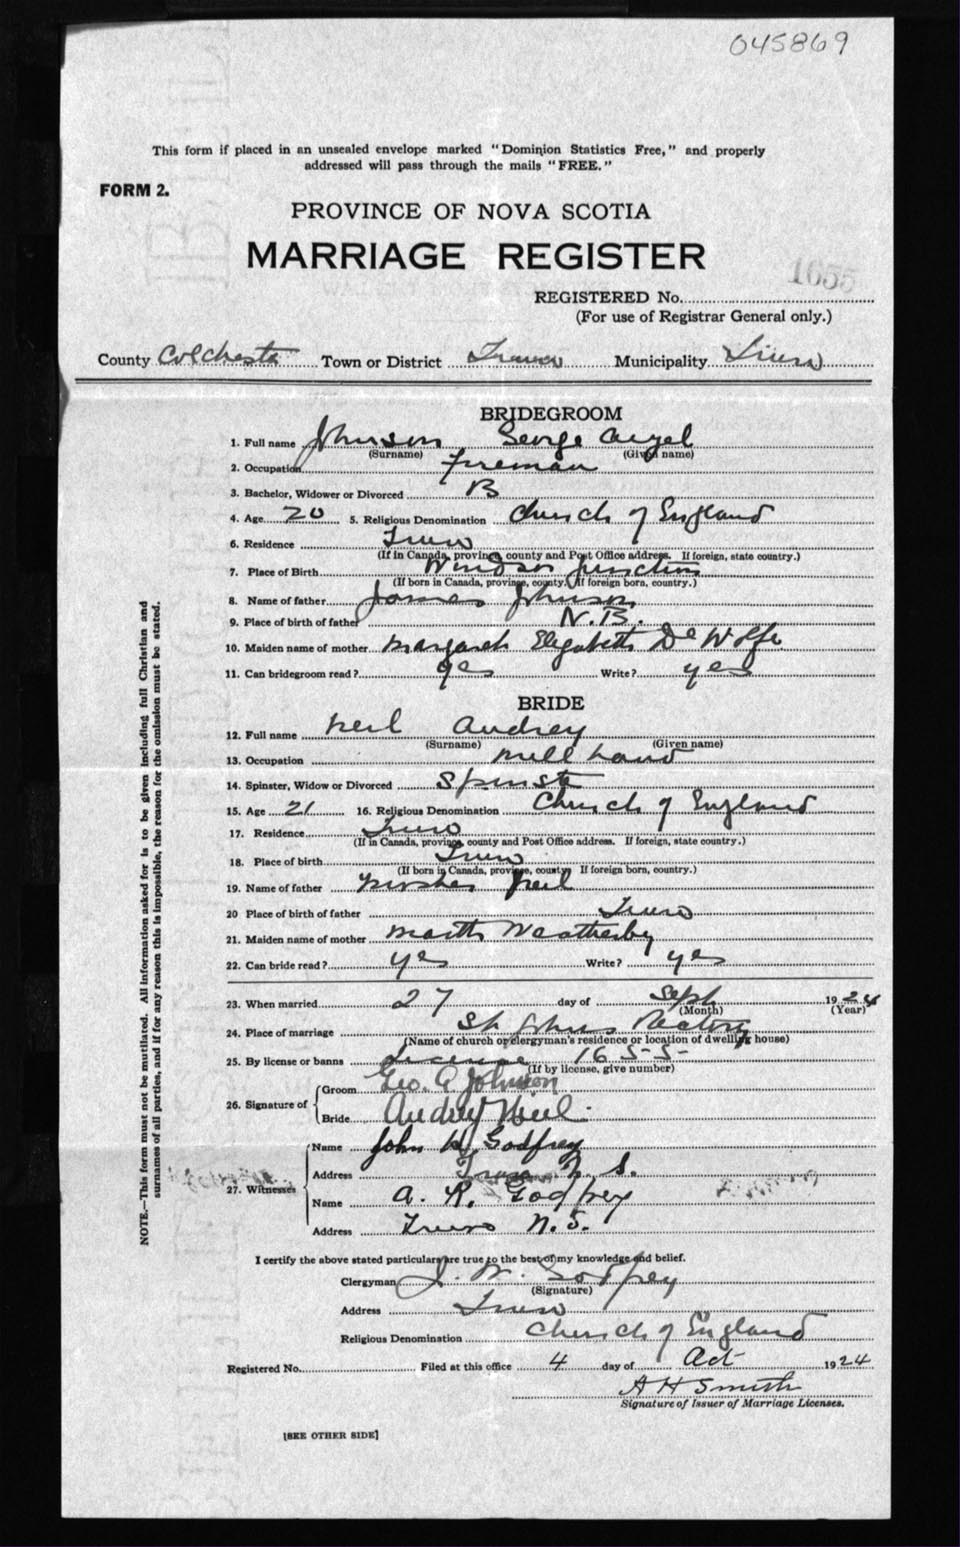 045869
This form if placed in an unsealed envelope marked "Dominion Statistics Free," and properly
addressed will pass through the mails "FREE."
FORM 2.
PROVINCE OF NOVA SCOTIA
MARRIAGE REGISTER
1655
REGISTERED No.
(For use of Registrar General only.)
County Colchester Town or District Truro Municipality Truro
BRIDEGROOM
1. Full name Johnson George
(Surname) (Given name)
2. Occupation Fireman
3. Bachelor, Widower or Divorced B
4. Age 20 5. Religious Denomination Church of England
6. Residence Truro
(If in Canada, province, county and Post Office address. If foreign, state country.)
7. Place of Birth Windsor Junction
(If born in Canada, province, county. If foreign born, country.)
8. Name of father James Johnson
9. Place of birth of father N.B.
10. Maiden name of mother Margaret Elizabeth De Wolfe
11. Can bridegroom read? yes Write? yes
BRIDE
12. Full name Neil Audrey
(Surname) (Given name)
13. Occupation Mill hand
14. Spinster, Widow or Divorced Spinster
15. Age 21 16. Religious Denomination Church of England
17. Residence Truro
(If in Canada, province, county and Post Office address. If foreign, state country.)
18. Place of birth Truro
(If born in Canada, province, county. If foreign born, country.)
19. Name of father Neil
20 Place of birth of father Truro
21. Maiden name of mother Weatherby
22. Can bride read? yes Write? yes
23. When married 27 day of Sept 1924
(Month) (Year)
24. Place of marriage St Johns Rectory
(Name of church or clergyman's residence or location of dwelling house)
25. By license or banns License 1655
(If by license, give number)
26. Signature of Groom Geo. A Johnson
Bride Audrey Neil
27. Witnesses Name John W. Godfrey
Address Truro N. S.
Name A. R. Godfrey
Address Truro N. S.
I certify the above stated particulars are true to the best of my knowledge and belief.
Clergyman J. W. Godfrey
(Signature)
Address Truro
Religious Denomination Church of England
Registered No. Filed at this office 4 day of Oct 1924
A H Smith
Signature of Issuer of Marriage Licenses.
[SEE OTHER SIDE]
NOTE.—This form must not be mutilated. All information asked for is to be given including full Christian and
surnames of all parties, and if for any reason this is impossible, the reason for the omission must be stated.